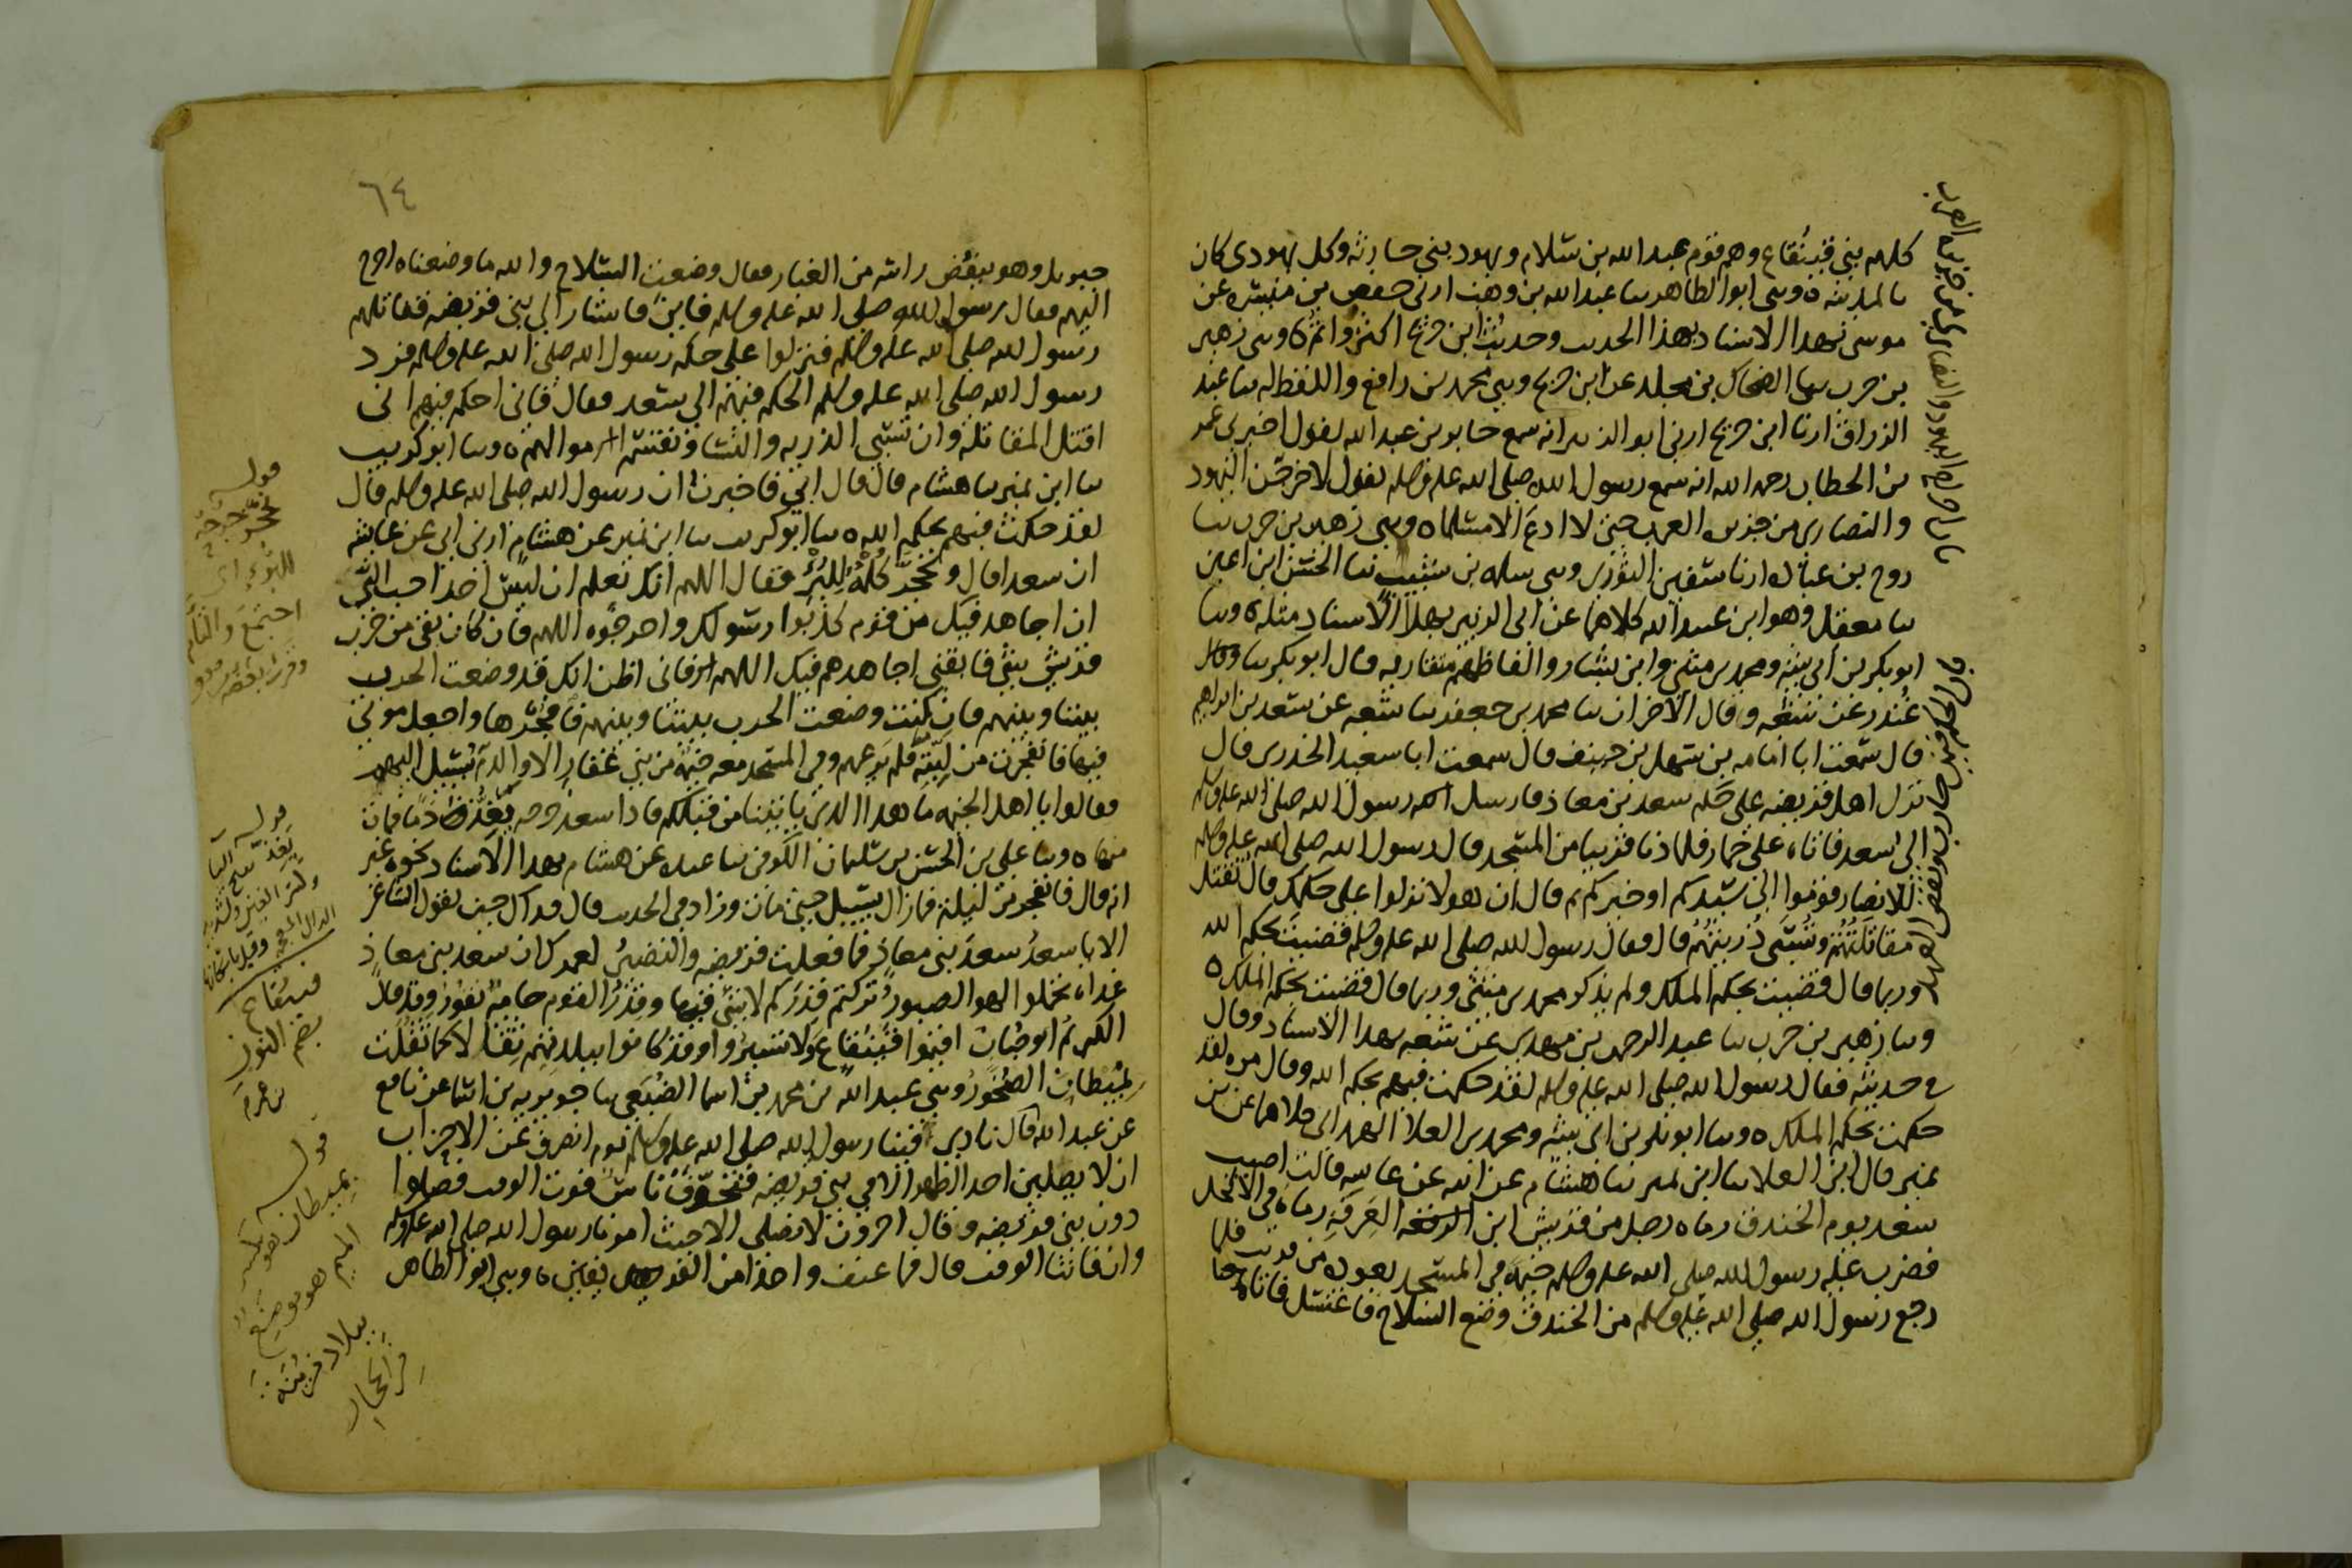 كلهم بني قينقاع وهم قوم عبد الله بن سلام ويهود بني حارثة وكل يهودى كان
بالمدينة ه وسى ابو الطاهر سا عبد الله بن وهب ارنى حفص بن ميسره عن
موسى بهدا الاسناد بهذا الحديث وحديث ابن جريج اكثر واتم ه وسى زهير
بن حرب سا الضحاك بن مخلد عن ابن جريج وسى محمد بن رافع واللفظ له سا عبد
الرزاق ارنا ابن جريج ارنى ابو الزبير انه سمع جابر بن عبد الله يقول اخبرنى عمر
بن الخطاب رحمه الله انه سمع رسول الله صلى الله عليه وسلم يقول لاخرجن اليهود
والنصارى من جزيرة العرب حتى لا ادع الا مسلما ه وسى زهير بن حرب سا
روح بن عباده ارنا سفين الثورى وسى سلمه بن شبيب سا الحسن ابن اعين
سا معقل وهو ابن عبيد الله كلاهما عن ابى الزبير بهذا الاسناد مثله ه وسا
ابو بكر بن ابى شيبه ومحمد بن مثنى وابن بشار والفاظهم متقاربه قال ابو بكر سا
غندر عن شعبه وقال الاخران سا محمد بن جعفر سا شعبه عن سعد بن ابراهيم
قال سمعت ابا امامه بن سهل بن حنيف قال سمعت ابا سعيد الخدرى قال
نزل اهل قريضه على حكم سعد بن معاذ فارسل اليه رسول الله صلى الله عليه وسلم
الى سعد فاتاه على حمار فلما دنا قريبا من المسجد قال رسول الله صلى الله عليه وسلم
للانصار قوموا الى سيدكم او خيركم ثم قال ان هولا نزلوا على حكمك قال تقتل
مقاتلتهم وتسبى ذريتهم قال فقال رسول الله صلى الله عليه وسلم قضيت بحكم الله
وربما قال قضيت بحكم الملك ولم يذكر محمد بن مثنى وربما قال قضيت بحكم الملك ه
وسا زهير بن حرب سا عبد الرحمن بن مهدى عن شعبه بهدا الاسناد وقال
فى حديثه فقال رسول الله صلى الله عليه وسلم لقد حكمت فيهم بحكم الله وقال مره لقد
حكمت بحكم الملك ه وسا ابو بكر بن ابى شيبه ومحمد بن العلا الهمدانى كلاهما عن بن
نمير قال ابن العلا سا ابن نمير سا هشام عن ابيه عن عايشه قالت اصيب
سعد يوم الخندق رماه رجل من قريش ابن العرقة رماه فى الاكحل
فضرب عليه رسول الله صلى الله عليه وسلم خيمة فى المسجد يعوده من قريب فلما
رجع رسول الله صلى الله عليه وسلم من الخندق وضع السلاح فاغتسل فاتاه
باب اخراج اليهود والنصارى من جزيرة العرب
٦٤
جبريل وهو ينفض راسه من الغبار فقال وضعت السلاح والله ما وضعناه اخرج
اليهم فقال رسول الله صلى الله عليه وسلم فاين فاشار الى بنى قريضه فقاتلهم
رسول الله صلى الله عليه وسلم فنزلوا على حكم رسول الله صلى الله عليه وسلم فرد
رسول الله صلى الله عليه وسلم الحكم فيهم الى سعد فقال فانى احكم فيهم انى
اقتل المقاتلة وان تسبى الذريه والنسا وتقتسم اموالهم ه وسا ابو كريب
سا ابن نمير سا هشام قال قال ابى فاخبرت ان رسول الله صلى الله عليه وسلم قال
لقد حكمت فيهم بحكم الله ه سا ابو كريب سا ابن نمير عن هشام ارنى ابى عن عايشه
ان سعدا قال وتحجر كلمه للبرء فقال اللهم انك تعلم ان ليس احد احب الى
ان اجاهد فيك من قوم كذبوا رسولك واخرجوه اللهم فان كان بقى من حرب
قريش شى فابقنى اجاهدهم فيك اللهم فانى اظن انك قد وضعت الحرب
بيننا وبينهم فان كنت وضعت الحرب بيننا وبينهم فافجرها واجعل موتى
فيها فانفجرت من لبته فلم يرعهم وفى المسجد معه خيمة من بنى غفار الا والدم يسيل اليهم
فقالوا يا اهل الخيمه ما هدا الذى ياتينا من قبلكم فاذا سعد جرحه يغذ دما فمات
منها ه وسا على بن الحسن بن سليمان الكوفى سا عبده عن هشام بهدا الاسناد نحوه غير
انه قال فانفجر من ليلته فمازال يسيل حتى مات وزاد فى الحديث قال فذاك حين يقول الشاعر
الا يا سعد سعد بنى معاذ فما فعلت قريضه والنضير لعمرك ان سعد بنى معاذ
غداة تحملوا لهو الصبور تركتم قدركم لا شى فيها وقدر القوم حامية تفور وقد قال
الكريم ابو حباب اقيموا قينقاع ولا تسيروا وقد كانوا ببلدتهم ثقالا كما ثقلت
بميطان الصخور وسى عبد الله بن محمد بن اسما الضبعى سا جويريه بن اسما عن نافع
عن عبد الله قال نادى فينا رسول الله صلى الله عليه وسلم يوم انصرف عن الاحزاب
ان لا يصلين احد الظهر الا فى بنى قريضه فتخوف ناس فوت الوقت فصلوا
دون بنى قريضه وقال اخرون لا نصلى الا حيث امرنا رسول الله صلى الله عليه وسلم
وان فاتنا الوقت قال فما عنف واحدا من الفريقين ه وسى ابو الطاهر
قوله
تحجر جرحه
للبرء اى
اجتمع والتام
قوله
يغذ
قينقاع
بضم النون
قوله
بميطان هو بكسر
الميم هو موضع
ببلاد مزينه
من الحجاز